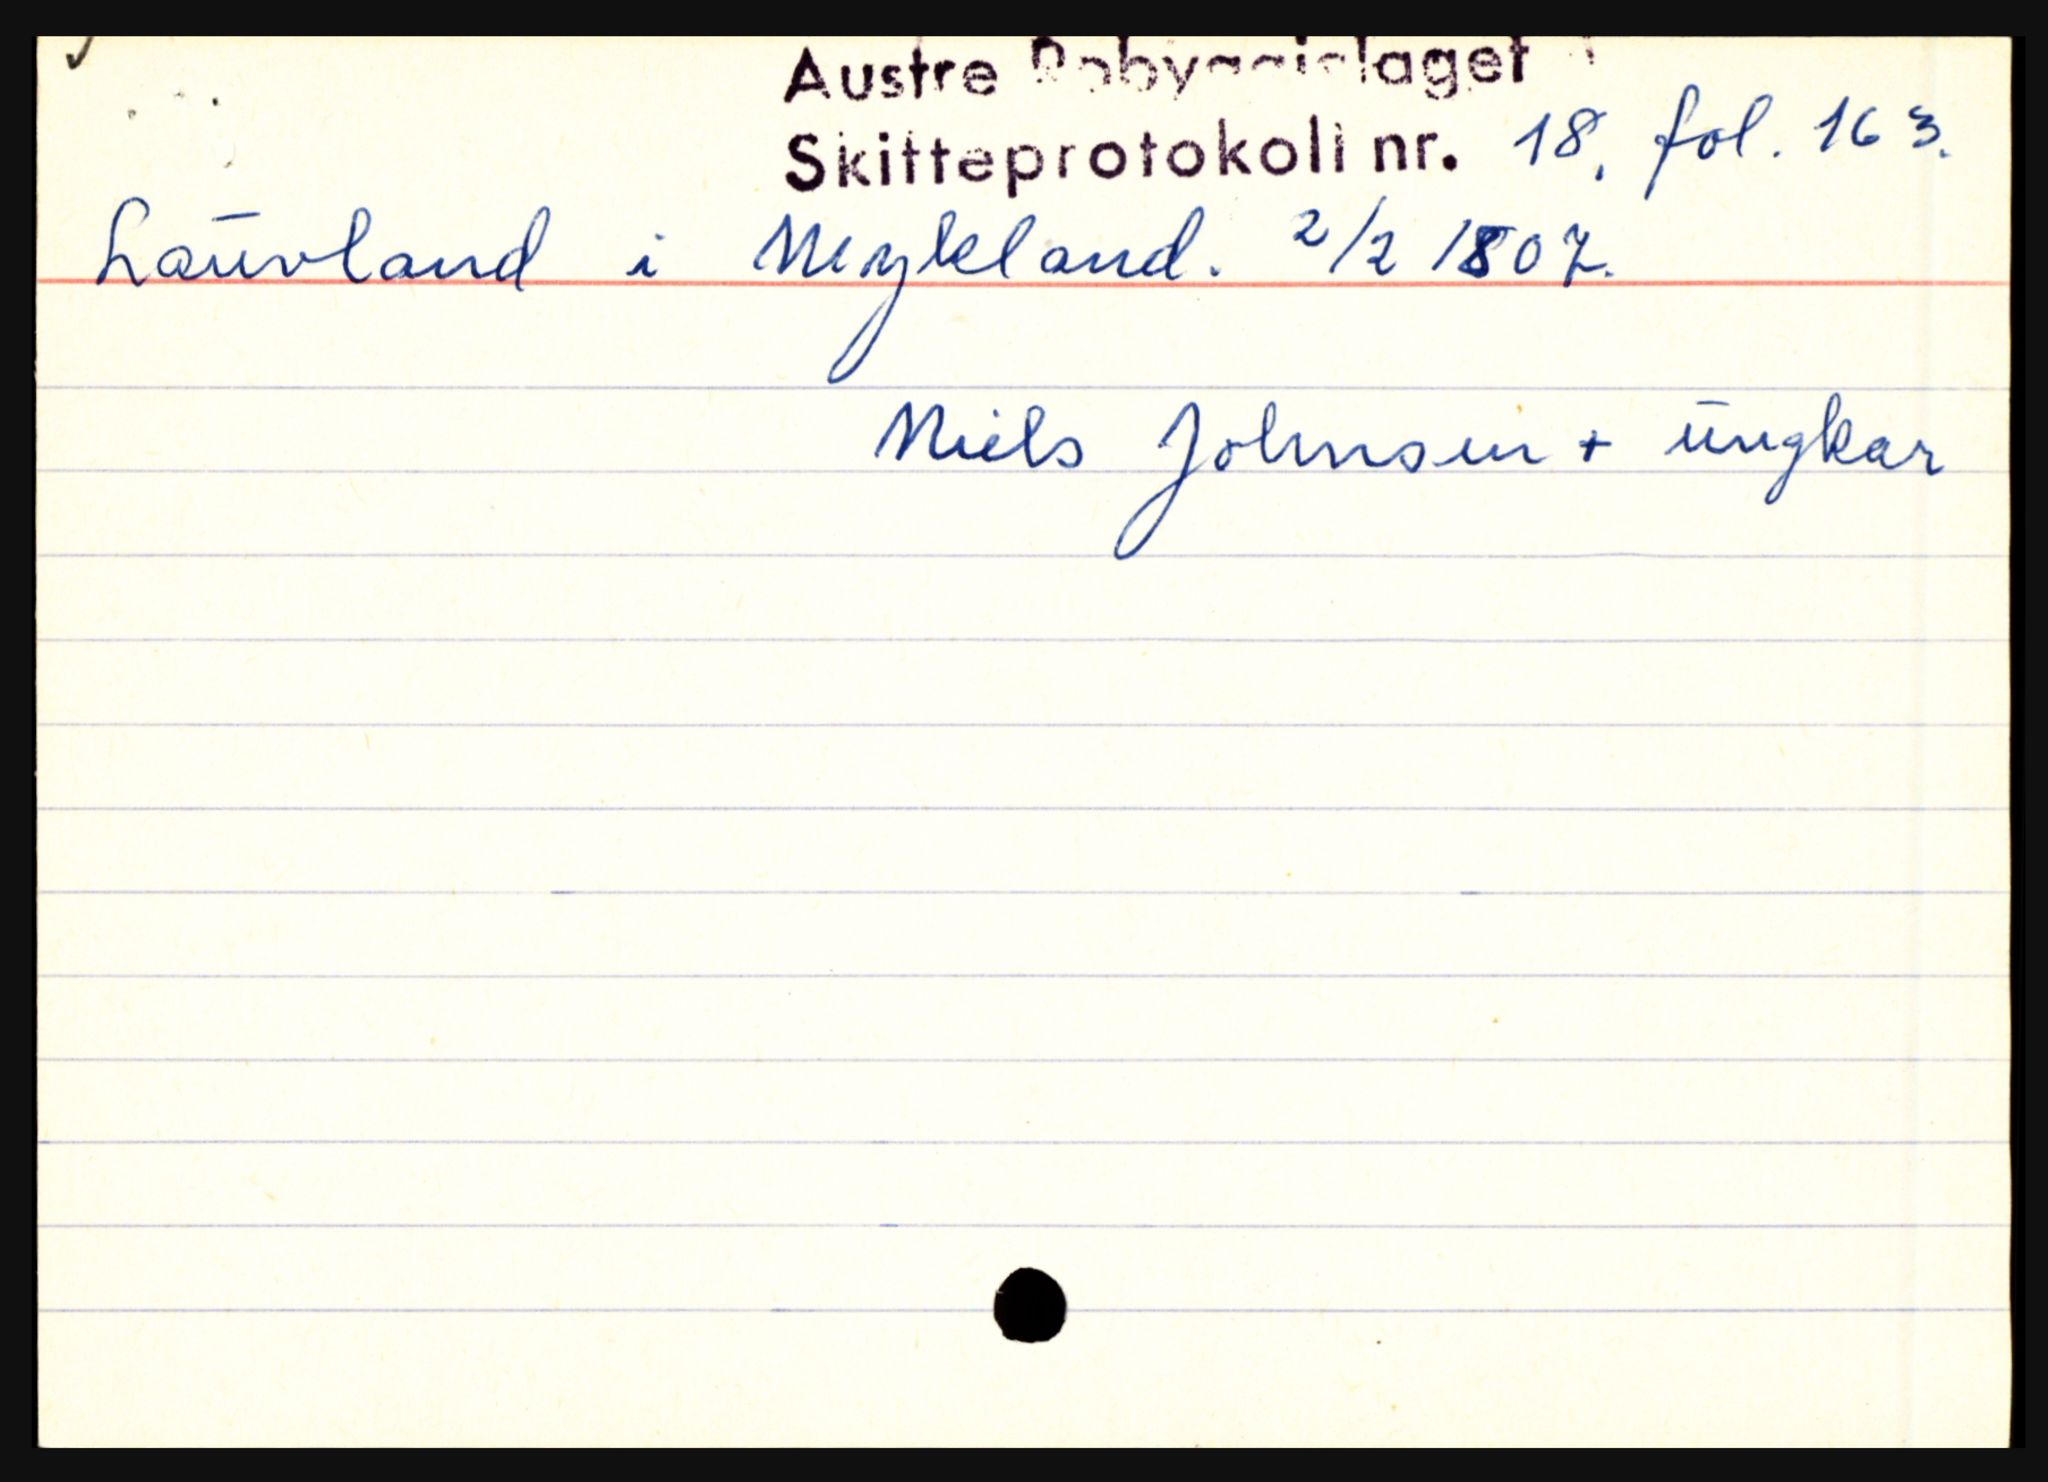 Austre Robyggjelaget
Skifteprotokoll nr. 18, fol. 163.
Lauvland i Mykland. 2/2 1807.
Niels Johnsen + ungkar